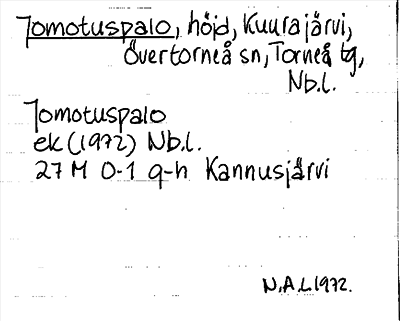 Jomotuspalo, höjd, Kuurajärvi,
Övertorneå sn, Torneå tg,
Nb.l.
Jomotuspalo
ek (1972) Nb.l.
27 M 0-1 g-h Kannusjärvi
N.A.L 1972.